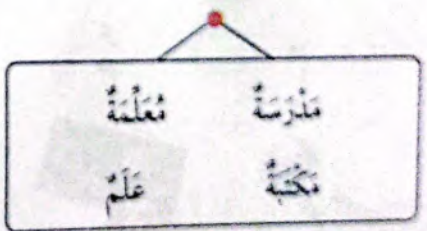 مَدْرَسَةٌ مُعَلِّمَةٌ
مَكْتَبَةٌ عَلَمٌ